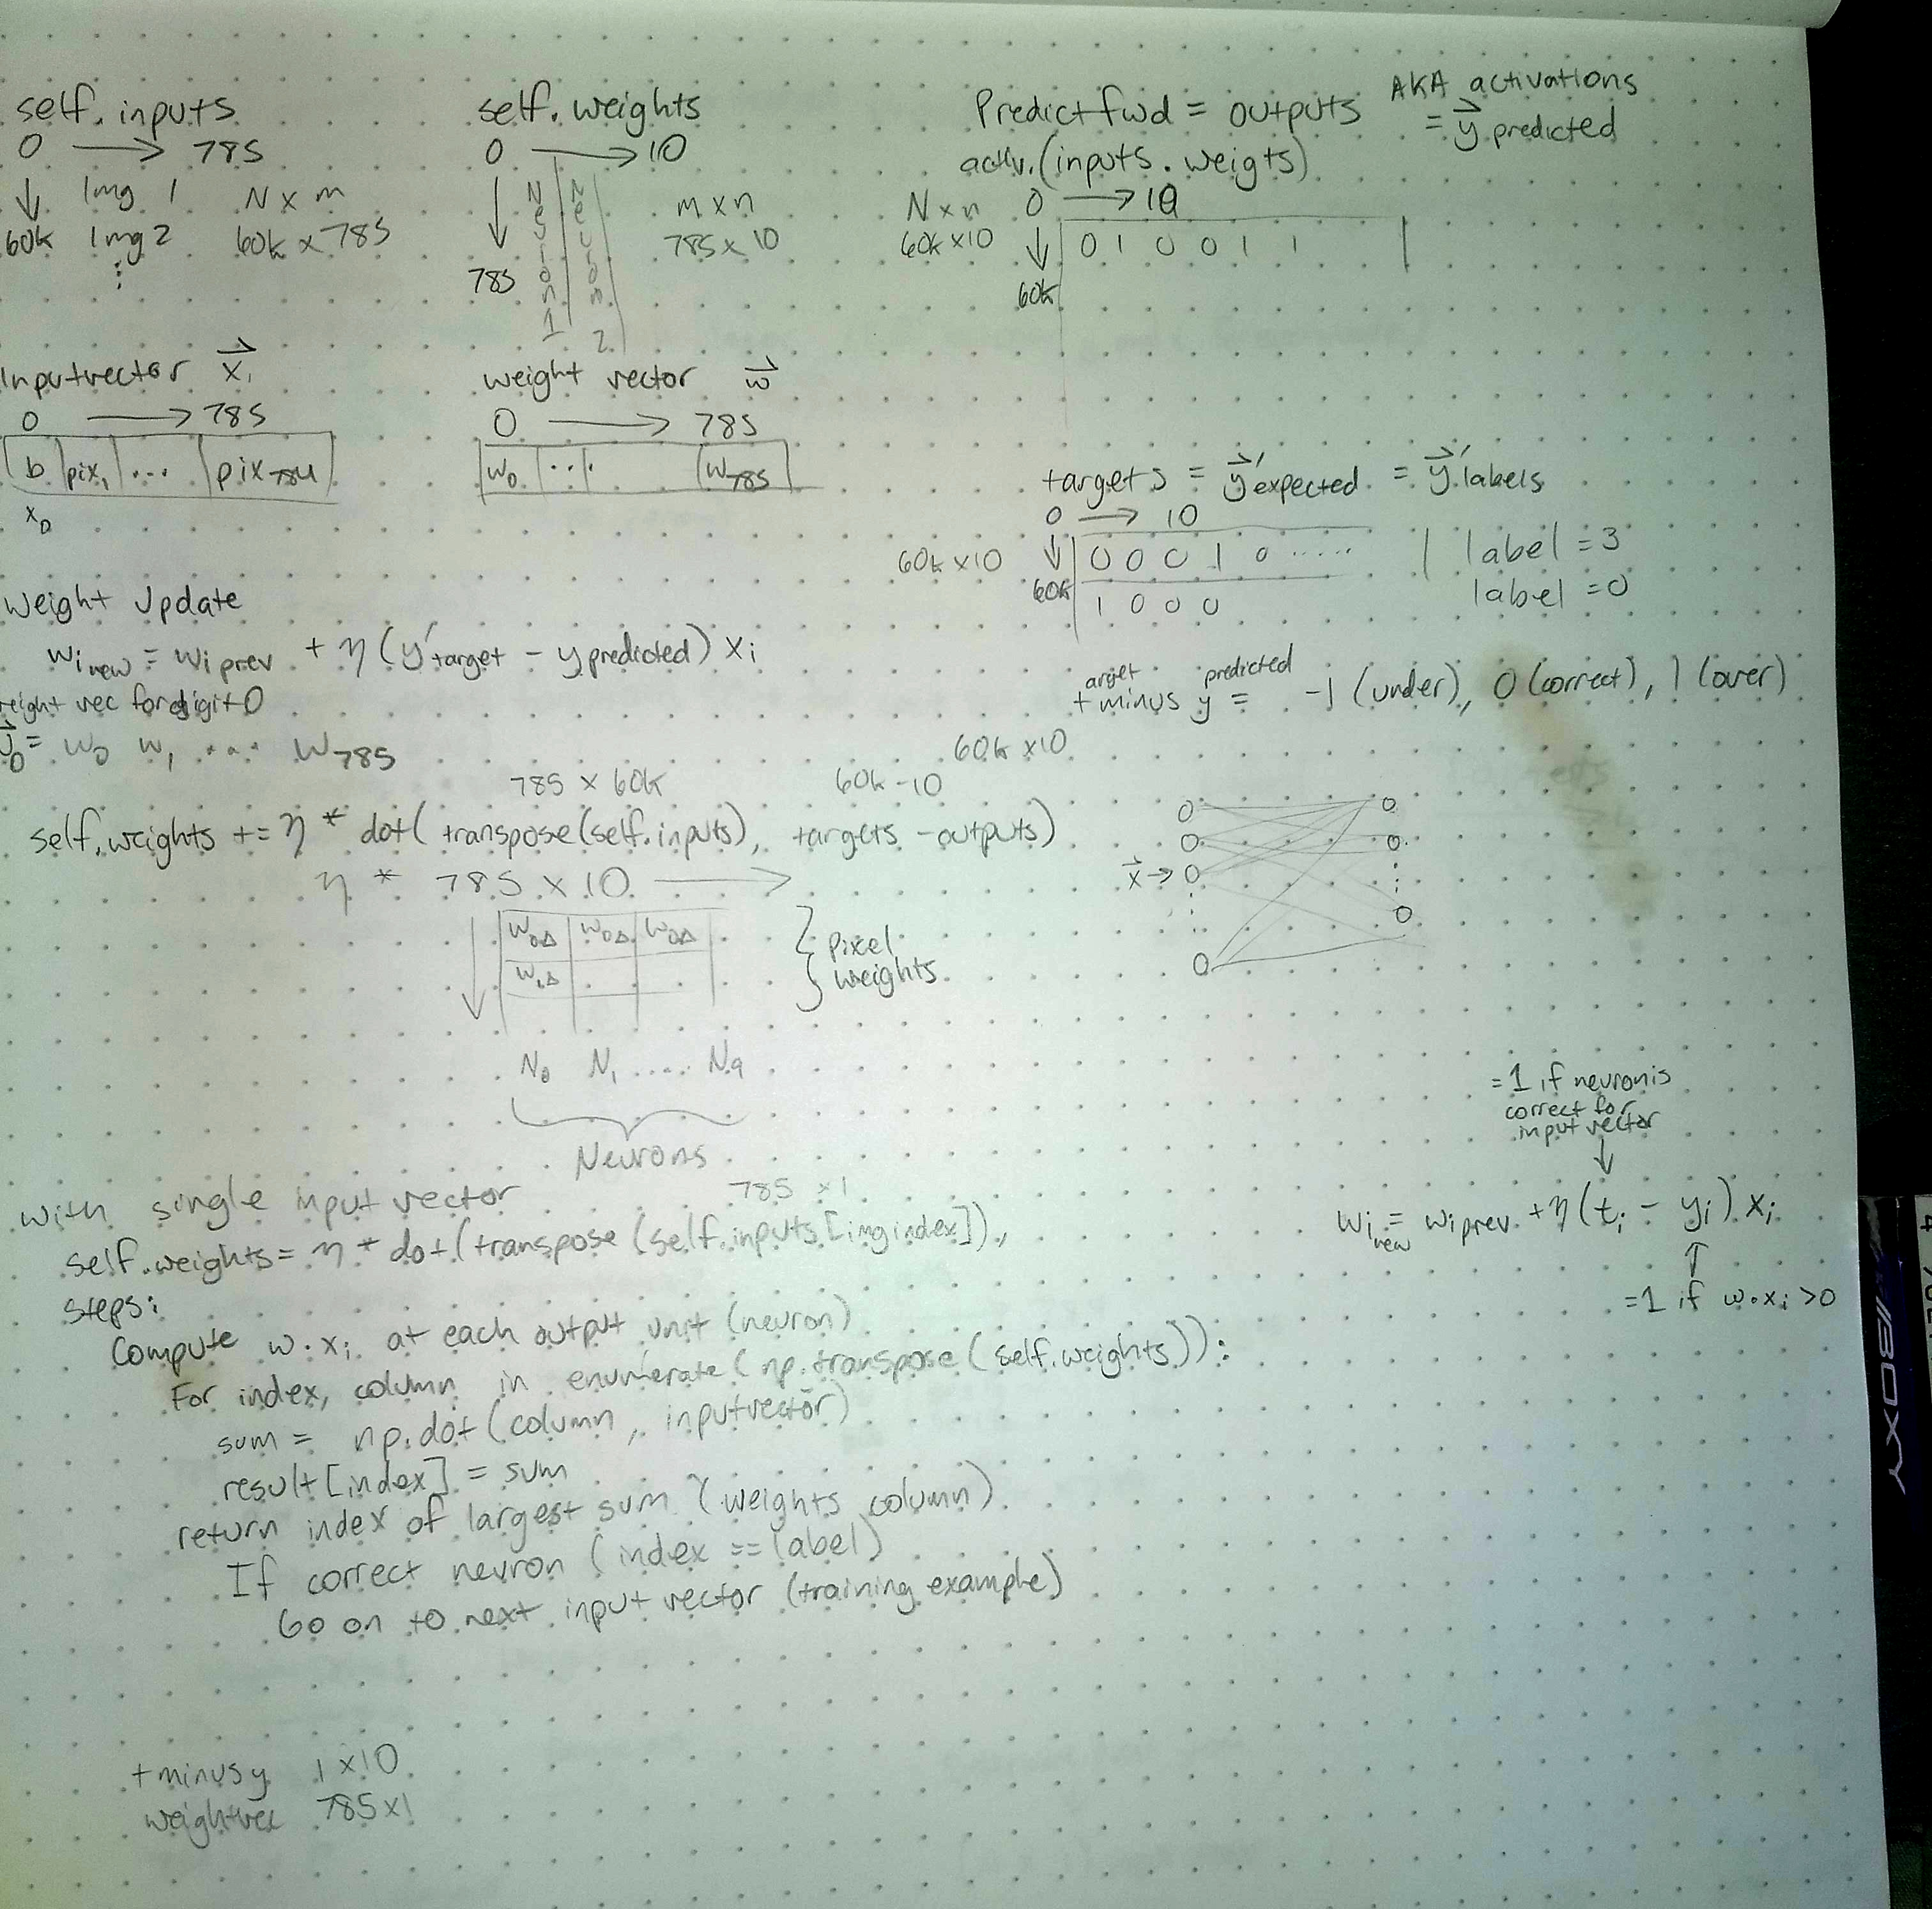 self.inputs
0 → 785
↓ Img 1 N x m
60k Img 2 60k x 785
⋮
self.weights
0 → 10
↓ Neuron 1 Neuron 2
m x n
785 x 10
785
Predict fwd = outputs AKA activations
= y⃗ predicted
activ.(inputs . weigts)
N x n 0 → 10
60k x10 ↓ 0 1 0 0 1 1
60k
Inputvector x⃗i
0 → 785
b pix1 ... pix784
x0
weight vector w⃗
0 → 785
w0 ... w785
targets = y⃗' expected = y⃗' labels
0 → 10
60k x10 ↓ 0 0 0 1 0 ..... label = 3
60k 1 0 0 0 label = 0
Weight Update
wi new = wi prev + η (y' target - y predicted) xi
target predicted
t minus y = -1 (under), 0 (correct), 1 (over)
weight vec for digit 0
= w0 w1 ... w785
785 x 60k 60k-10 60k x10
self.weights += η * dot( transpose(self.inputs), targets - outputs)
η * 785 x 10 →
w0Δ w0Δ w0Δ
w1Δ
} Pixel
weights
N0 N1 .... N9
Neurons
x⃗ →
= 1 if neuron is
correct for
input vector
↓
wi new = wi prev + η (ti - yi) xi
↑
= 1 if w·xi > 0
with single input vector
785 x1
self.weights = η * dot(transpose (self.inputs[imgindex]),
Steps:
Compute w·xi at each output unit (neuron)
For index, column in enumerate( np.transpose (self.weights)):
sum = np.dot (column, inputvector)
result [index] = sum
return index of largest sum (weights column)
If correct neuron (index == label)
Go on to next input vector (training example)
t minus y 1 x10
weightvec 785 x1
BOXY